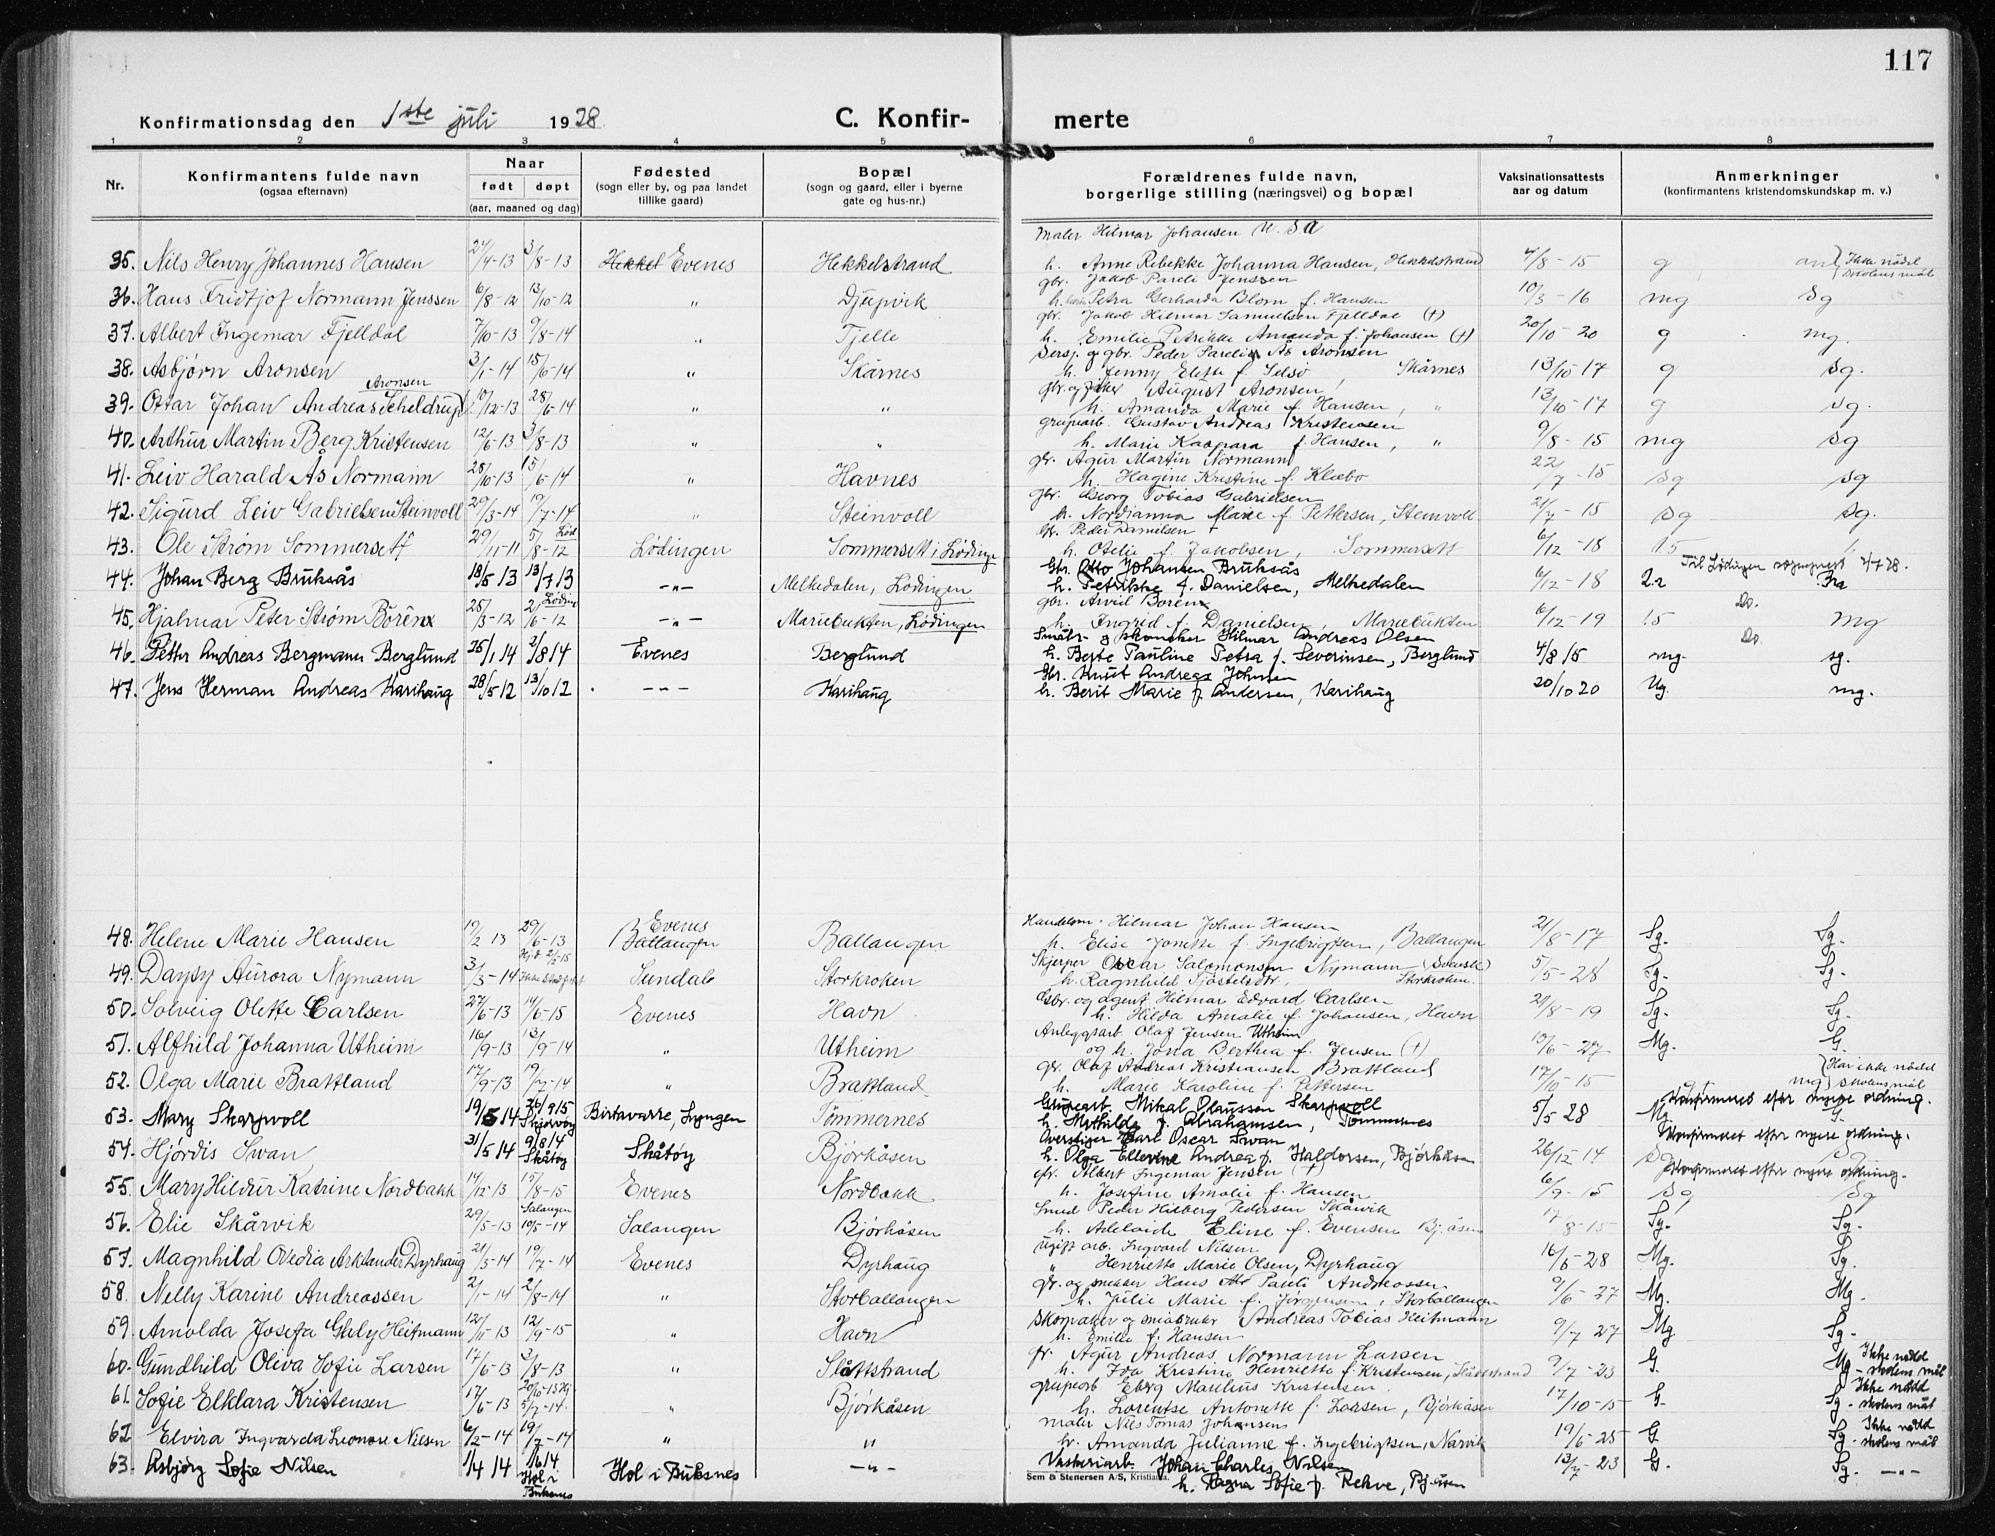 117
Konfirmationsdag den 1ste juli 1928. C. Konfirmerte
1 2 3 4 5 6 7 8
Nr. Konfirmantens fulde navn (ogsaa efternavn) Naar født døpt (aar, maaned og dag) Fødested (sogn eller by, og paa landet tillike gaard) Bopæl (sogn og gaard, eller i byerne gate og hus-nr.) Forældrenes fulde navn, borgerlige stilling (næringsvei) og bopæl Vaksinationsattests aar og datum Anmerkninger (konfirmantens kristendomskundskap m. v.)
Maler Hilmar Johansen U.S.A
35. Nils Henry Johannes Hansen 24/4-13 3/8-13 Hekkel Evenes Hekkelstrand h. Anne Rebekke Johanna Hansen, Hekkelstrand 4/8-15 g Ikke nådd skolens mål
gbr. Jakob Pareli Jenssen
36. Hans Fridtjof Normann Jenssen 6/8-12 13/10-12 " Djupvik h. Petra Gerharda Blom f. Hansen 10/3-16 mg Sg
gbr. Jakob Hilmar Samuelsen Fjelldal (+)
37. Albert Ingemar Fjelldal 7/10-13 9/8-14 " Tjelle h. Emilie Petrikke Amanda f. Johansen (+) 20/10-20 g mg.
Sersj. og gbr. Peder Parelius Ås Aronsen
38. Asbjørn Aronsen 3/1-14 15/6-14 " Skårnes h. Jenny Elette f. Selsø Skårnes 13/10 17 g sg.
gbr. og fisker August Aronsen
39. Ottar Johan Andreas Scheldrup Aronsen 10/12-13 28/6-14 " " h. Amanda Marie f. Hansen, " 13/10-17 g sg.
grubearb. Gustav Andreas Kristensen
40. Arthur Martin Berg Kristensen 12/6-13 3/8-13 " " h. Marie Kaspara f. Hansen, " 9/8-15 mg sg
gbr. Agur Martin Normann
41. Leiv Harald Ås Normann 28/10-13 15/6-14 " Havnes h. Hagine Kristine f. Klæbo 22/7-15 sg sg
gbr. Georg Tobias Gabrielsen
42. Sigurd Leiv Gabrielsen Steinvoll 29/3-14 19/7-14 " Steinvoll h. Nordianna Marie f. Pettersen, Steinvoll 21/7-15 sg sg.
gbr. Peder Danielsen +
43. Ole Strøm Sommersett 29/11-11 5/8-12 Lød. Lødingen Sommersett i Lødinge h. Otelie f. Jakobsen, Sommersett 6/12-18 1.5
Gbr. Otto Johansen Bruksås Til Lødingen sogneprest 4/7 28.
44. Johan Berg Bruksås 18/5 13 13/7 13 -"- Melkedalen, Lødingen h. Petrikke f. Danielsen, Melkedalen 6/12-18 2.2
gbr. Arvid Boren Do.
45. Hjalmar Peter Strøm Bören 25/3-12 2/6-12 Løding -"- Mariebukten, Lødingen h. Ingrid f. Danielsen, Mariebukten 6/12-19 1.5 mg
Småbr. og skomaker Hilmar Andreas Olsen Do.
46. Petter Andreas Bergmann Berglund 25/1 14 2/8 14 Evenes Berglund h. Berte Pauline Petra f. Severinsen, Berglund 4/8 15 mg. sg.
Gbr. Knut Andreas Johnsen
47. Jens Herman Andreas Karihaug 28/5 12 13/10 12 -"- Karihaug h. Berit Marie f. Andersen, Karihaug 20/10 20 Ug. mg.
Handelsm. Hilmar Johan Hansen
48. Helene Marie Hansen 19/2 13 29/6-13 Evenes Ballangen Ballangen h. Elise Jonette f. Ingebrigtsen, Ballangen 21/8-17 Sg. Sg.
Skjerper Oscar Salomonsen Nymann (Svensk)
49. Daysy Aurora Nymann 3/3-14 Hj.d. 2/2-15 Sundals Storkroken h. Ragnhild Tjöstelsdtr., Storkroken. 5/5-28 Sg. Sg.
Gbr. og agent Hilmar Edvard Carlsen
50. Solveig Olette Carlsen 27/6-13 14/6-15 Evenes Havn h. Hilda Amalie f. Johansen, Havn 21/8-19 Sg. Sg.
Anleggsarb. Olaf Jensen Utheim
51. Alfhild Johanna Utheim 16/9-13 13/9-14 " Utheim og h. Jona Berthea f. Jensen (+) 10/6-27 Mg. G.
gbr. Olaf Andreas Kristiansen Brattland
52. Olga Marie Brattland 17/9-13 19/7-14 " Brattland h. Marie Karoline f. Pettersen 17/10-15 g mg Har ikke nådd skolens mål
Grubearb. Mikal Olaussen Skarpvoll Konfirmeret efter nyere ordning.
53. Mary Skarpvoll 19/5 14 26/9 15 Skjervøy Birtavarre, Lyngen Tömmernes h. Mathilde f. Abrahamsen, Tömmernes 5/5 28 Mg G.
Overstiger Carl Oscar Swan Konfirmeret efter nyere ordning.
54. Hjørdis Swan 31/5 14 9/8 14 Skåtøy Skåtøy Bjørkåsen h. Olga Ellevine Andrea f. Haldorsen, Bjørkåsen 26/12 14 sg sg
gbr. Albert Ingemar Jensen (+) Konfirmeret efter nyere ordning.
55. Mary Hildur Katrine Nordbakk 14/12 13 15/8-15 Evenes Nordbakk h. Josefine Amalie f. Hansen 6/9-15 sg sg
Smed Peder Hilberg Pedersen Skårvik
56. Elie Skårvik 29/5-13 Salangen 10/5-14 Salangen Bjørkåsen h. Adelaide Eline f. Evensen Bj.åsen 17/8-15 Sg. Sg.
Ugift arb. Ingvard Nilsen
57. Magnhild Ovedia Arklander Dyrhaug 21/3-14 19/7-14 Evenes Dyrhaug " Henriette Marie Olsen, Dyrhaug 16/6-28 Mg. Sg.
gbr. og snekker Hans Pareli Andreassen
58. Nelly Karine Andreassen 2/1-14 2/8-14 " Storballangen h. Julie Marie f. Jörgensen, Storballangen 9/6-27 Mg. Mg.
Skomaker og småbruker Andreas Tobias Heitmann
59. Arnolda Josefa Gjely Heitmann 12/11-13 12/9-15 " Havn h. Emilie f. Hansen 9/7 27 Mg Sg.
gbr. Agur Andreas Normann Larsen
60. Gundhild Oliva Sofie Larsen 17/6-13 3/8-13 " Slåttstrand h. Ida Kristine Henriette f. Kristensen, Slåttstrand 9/7-23 G. Mg. Ikke nådd skolens mål
grubearb Eberg Maulius Kristensen
61. Sofie Elklara Kristensen 17/6-13 20/6-13 Hj. 5/7-14. " Bjørkåsen h. Lorentse Antonette f. Larsen, Bjørkåsen 17/10-15 G. Sg. Ikke nådd skolens mål
Maler Nils Tomas Johansen
62 Elvira Ingvarda Leonore Nilsen 6/2-14 19/7-14 " " h. Amanda Julianne f. Ingebrigtsen, Narvik 19/6-25 G Sg. Ikke nådd skolens mål
63. Asbjørg Sofie Nilsen 1/4 14 1/6 14 Hol i Buksnes Hol i Buksnes -"- Vaskeriarb. Johan Charles Nilsen 13/7-23 G. Sg. -"-
Sem & Stenersen A/S, Kristiania.
h. Ragna Sofie f. Rekve, Bj.åsen